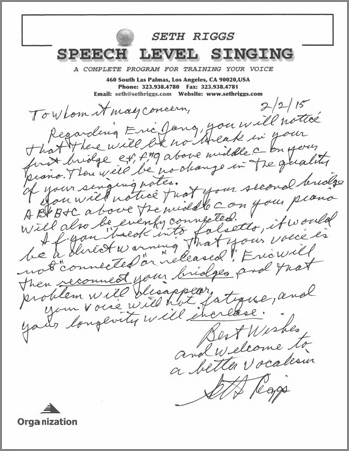 SETH RIGGS
SPEECH LEVEL SINGING
A COMPLETE PROGRAM FOR TRAINING YOUR VOICE
460 South Las Palmas, Los Angeles, CA 90020, USA
Phone: 323.938.4780 Fax: 323.938.4781
Email: seth@sethriggs.com Website: www.sethriggs.com
2/2/15
To whom it may concern,
Regarding Eric Jang, you will notice
that there will be no break in your
first bridge above middle C on your
piano. There will be no change in the quality
of your singing notes.
You will notice that your second bridge
above the middle C on your piano
will also be evenly connected.
If you "break" into falsetto, it would
be a direct warning that your voice is
not "connected" or "released". Eric will
then reconnect your bridges and that
problem will disappear.
Your voice will not fatigue, and
your longevity will increase.
Best Wishes
and welcome to
a better vocalism
Seth Riggs
Organization